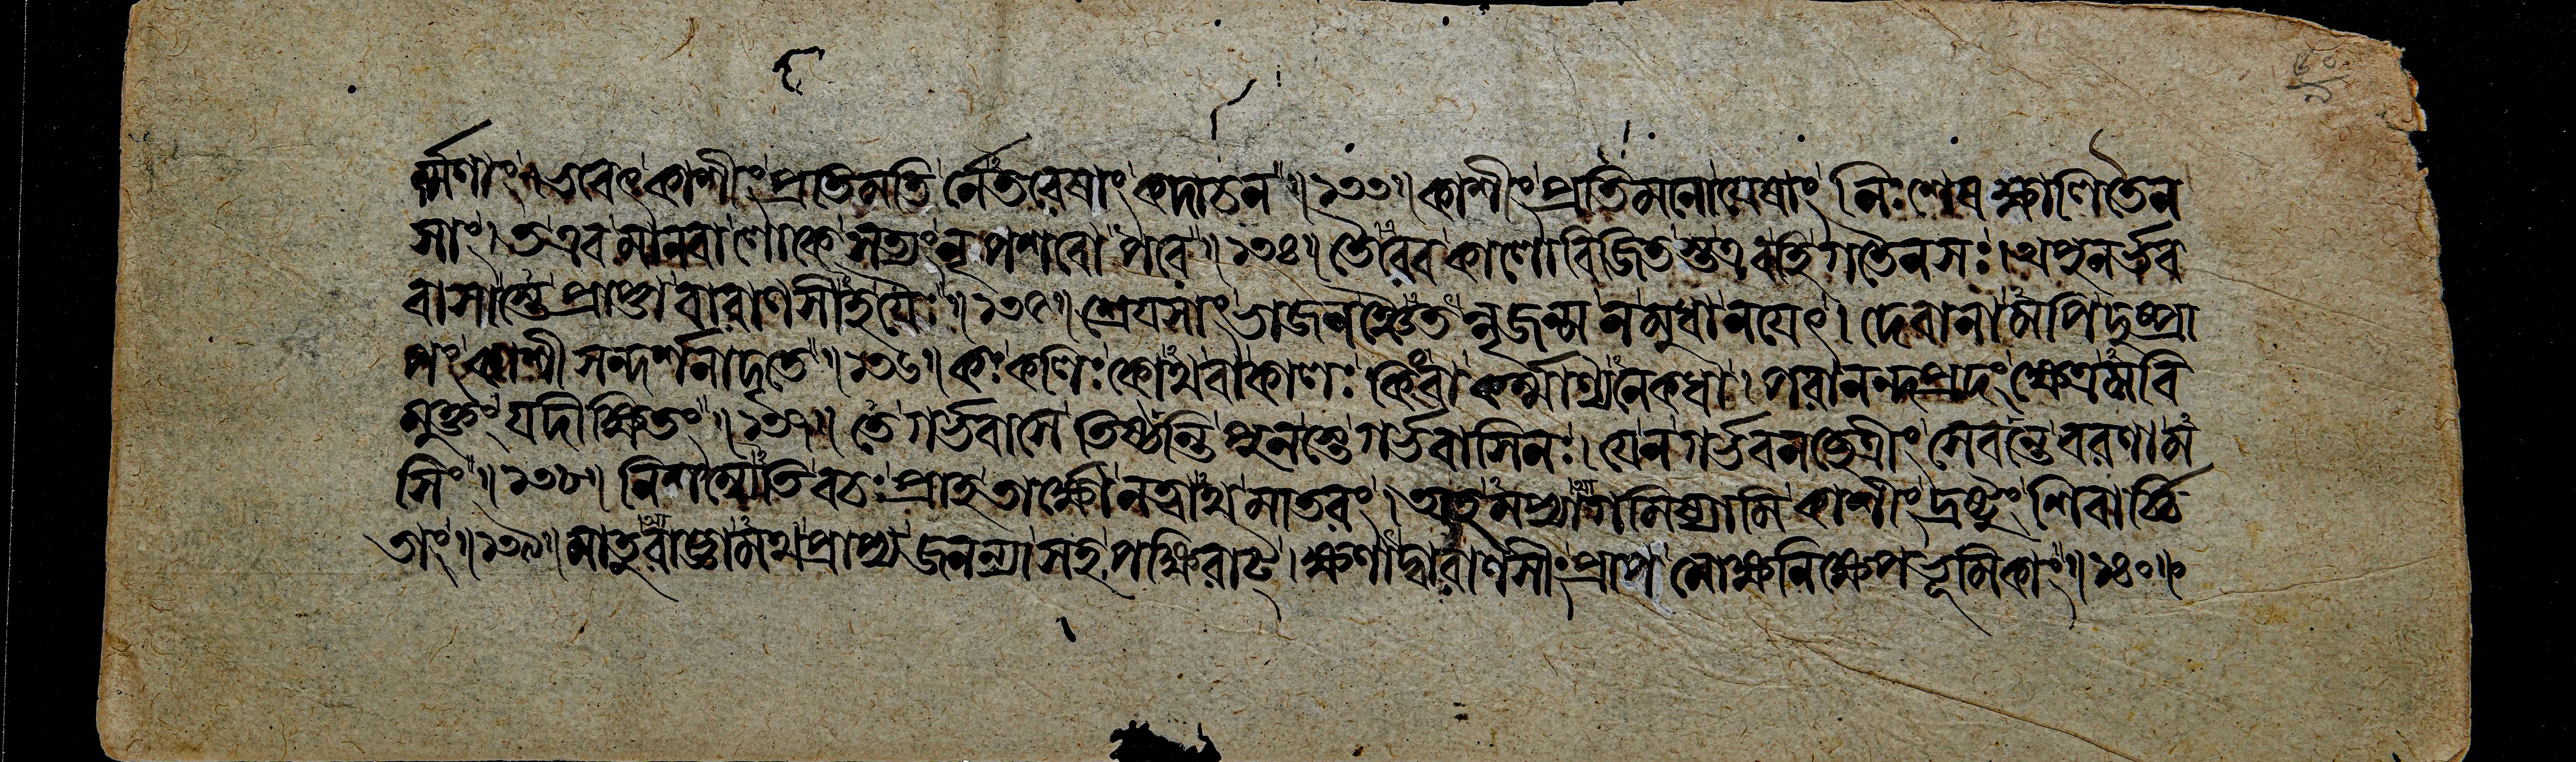 র্ম্মণাং। ভবেৎ কাশীং প্রতিমতি র্নেতরেষাং কদাচন॥১৩৩॥ কাশীং প্রতিমনোযেষাং নিঃশেষক্ষাণিতৈন
সাং। তএবমানবালোকে সত্যংনৃপশবোপরে॥১৩৪॥ তৈরেব কালোবিজিতস্তএবহি গতৈনসঃ। অপুনর্গর্ভব
বাসাস্তে প্রাপ্তা বারাণসীহযৈঃ॥১৩৫॥ শ্রেযসাং ভাজনঞ্চৈতন্নৃজন্ম নমুধানযেৎ। দেবানামপি দুষ্প্রা
পং কাশীসন্দর্শনাদৃতে॥১৩৬॥ কঃ কলিঃ কোঽথবাকালঃ কিংবা কর্ম্মাণ্যনেকধা। পরানন্দপ্রদং ক্ষেত্রমবি
মুক্তং যদীক্ষিতং॥১৩৭॥ তে গর্ভবাসে তিষ্ঠন্তি পুনস্তে গর্ভবাসিনঃ। যেন গর্ভবনচ্ছেত্রীং সেবন্তে বরণাম
সিং॥১৩৮॥ নিশম্যেতি বচঃ প্রাহ তার্ক্ষ্যোনত্বাথ মাতরং। অহমপ্যাগমিষ্যামি কাশীং দ্রষ্টুং শিবার্চ্চি
তাং॥১৩৯॥ মাতুরাজ্ঞামথপ্রাপ্য জনন্যাসহ পক্ষিরাট্। ক্ষণাদ্বারাণসীং প্রাপ মোক্ষনিক্ষেপভূমিকাং॥১৪০॥